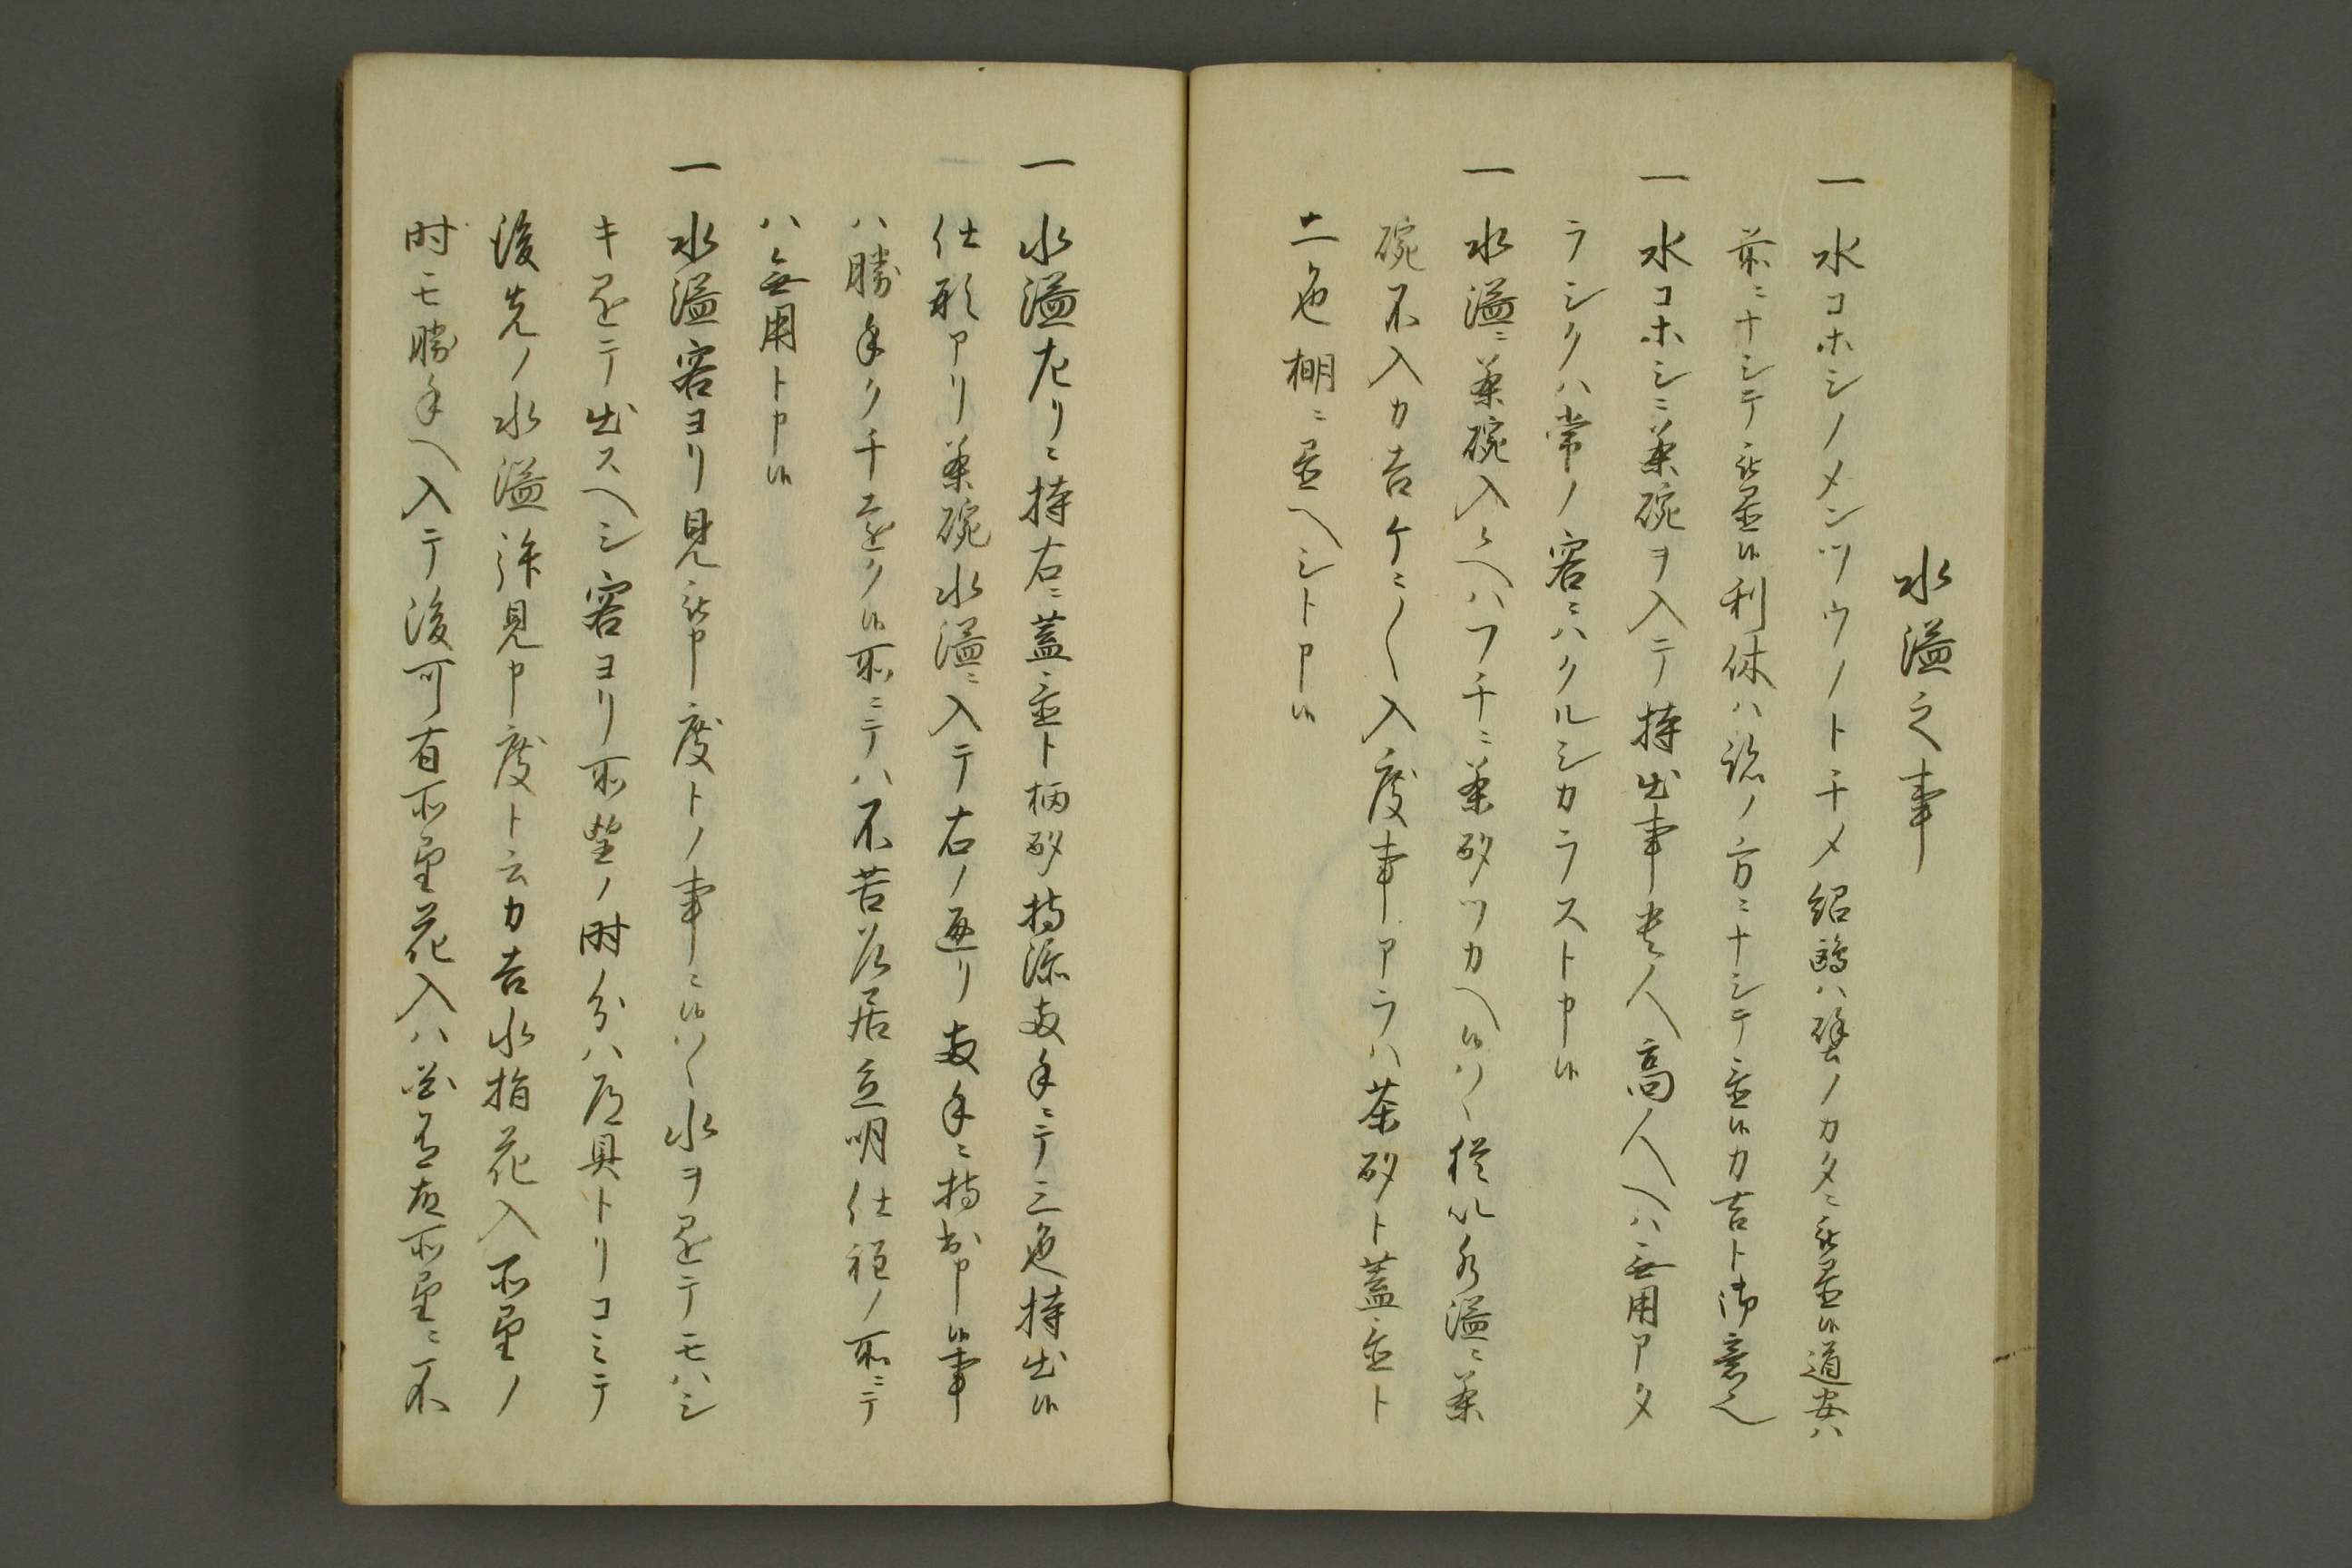 水溢之事
一 水コホシノメンツウノトチメ紹鷗ハ壁ノカタニ被置候道安ハ
前ニナシテ被置候利休ハ詰ノ方ニナシテ置候カ吉ト御意也
一 水コホシニ茶碗ヲ入テ持出事貴人高人ヘハ無用アタ
ラシクハ常ノ客ニハクルシカラスト申候
一 水溢ニ茶碗入候ヘハフチニ茶杓ツカヘ候ハヽ 水溢ニ茶
碗不入カ吉ケニ〳〵入度事アラハ茶杓ト蓋置ト
二色棚ニ置ヘシト申候
一 水溢左リニ持右ニ蓋置ト柄杓持添両手ニテ三色持出候
仕形アリ茶碗水溢ニ入テ右ノ通リ両手ニ持出申候事
ハ勝手クチ近ク候所ニテハ不苦候居立明仕程ノ所ニテ
ハ無用ト申候
一 水溢客ヨリ見被申度トノ事ニ候ハヽ水ヲ捨テモハシ
キ捨テ出スヘシ客ヨリ所望ノ時分ハ道具トリコミテ
後先ノ水溢許見申度ト云カ吉水指花入所望ノ
時モ勝手ヘ入テ後可有所望花入ハ 所望ニ不